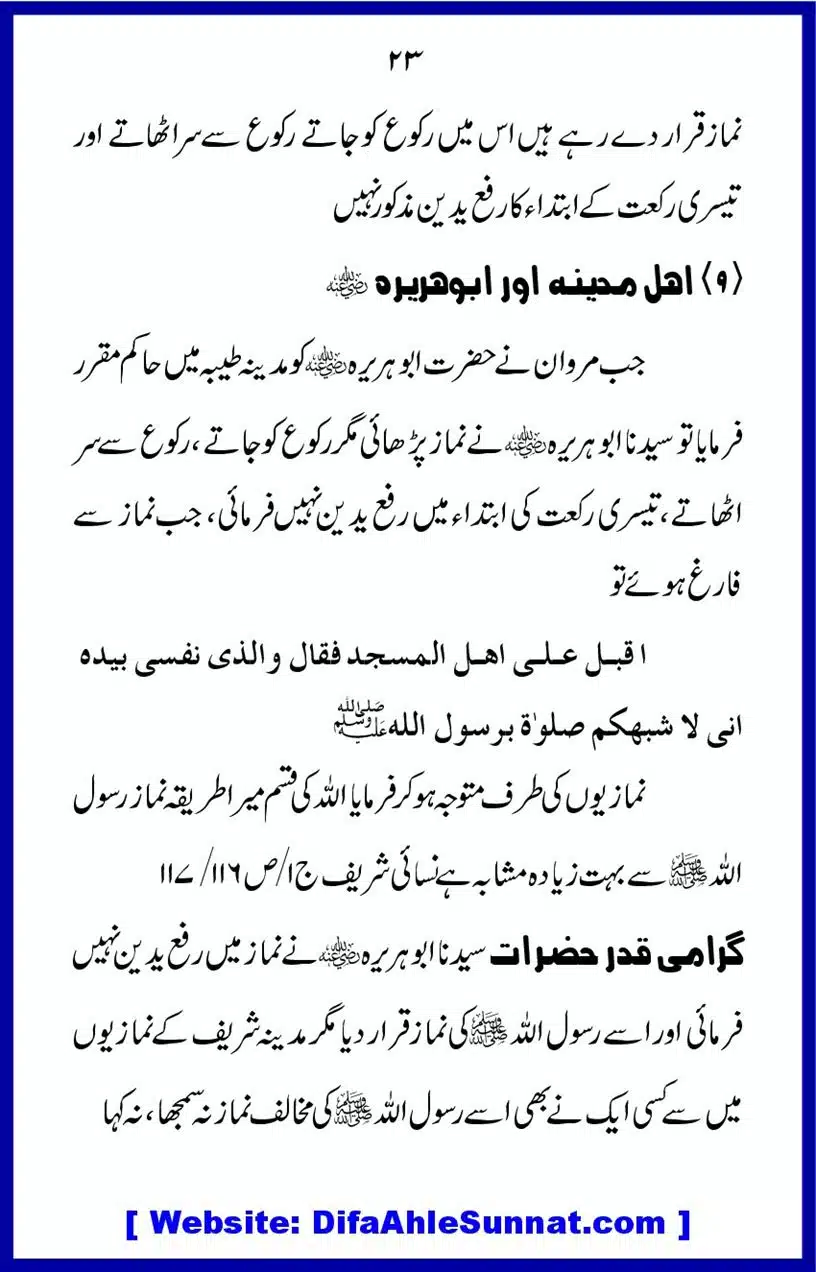 ۲۳
نماز قرار دے رہے ہیں اس میں رکوع کو جاتے رکوع سے سر اٹھاتے اور
تیسری رکعت کے ابتداء کا رفع یدین مذکور نہیں
﴿۹﴾ اھل مدینہ اور ابوھریرہ رضی اللہ عنہ
جب مروان نے حضرت ابو ہریرہ رضی اللہ عنہ کو مدینہ طیبہ میں حاکم مقرر
فرمایا تو سیدنا ابو ہریرہ رضی اللہ عنہ نے نماز پڑھائی مگر رکوع کو جاتے ، رکوع سے سر
اٹھاتے ، تیسری رکعت کی ابتداء میں رفع یدین نہیں فرمائی ، جب نماز سے
فارغ ہوئے تو
اقبل علی اھل المسجد فقال والذی نفسی بیدہ
انی لا شبھکم صلوٰۃ برسول اللہ ﷺ
نمازیوں کی طرف متوجہ ہو کر فرمایا اللہ کی قسم میرا طریقہ نماز رسول
اللہ ﷺ سے بہت زیادہ مشابہ ہے نسائی شریف ج۱/ص ۱۱۶/ ۱۱۷
گرامی قدر حضرات سیدنا ابو ہریرہ رضی اللہ عنہ نے نماز میں رفع یدین نہیں
فرمائی اور اسے رسول اللہ ﷺ کی نماز قرار دیا مگر مدینہ شریف کے نمازیوں
میں سے کسی ایک نے بھی اسے رسول اللہ ﷺ کی مخالف نماز نہ سمجھا ، نہ کہا
[ Website: DifaAhleSunnat.com ]